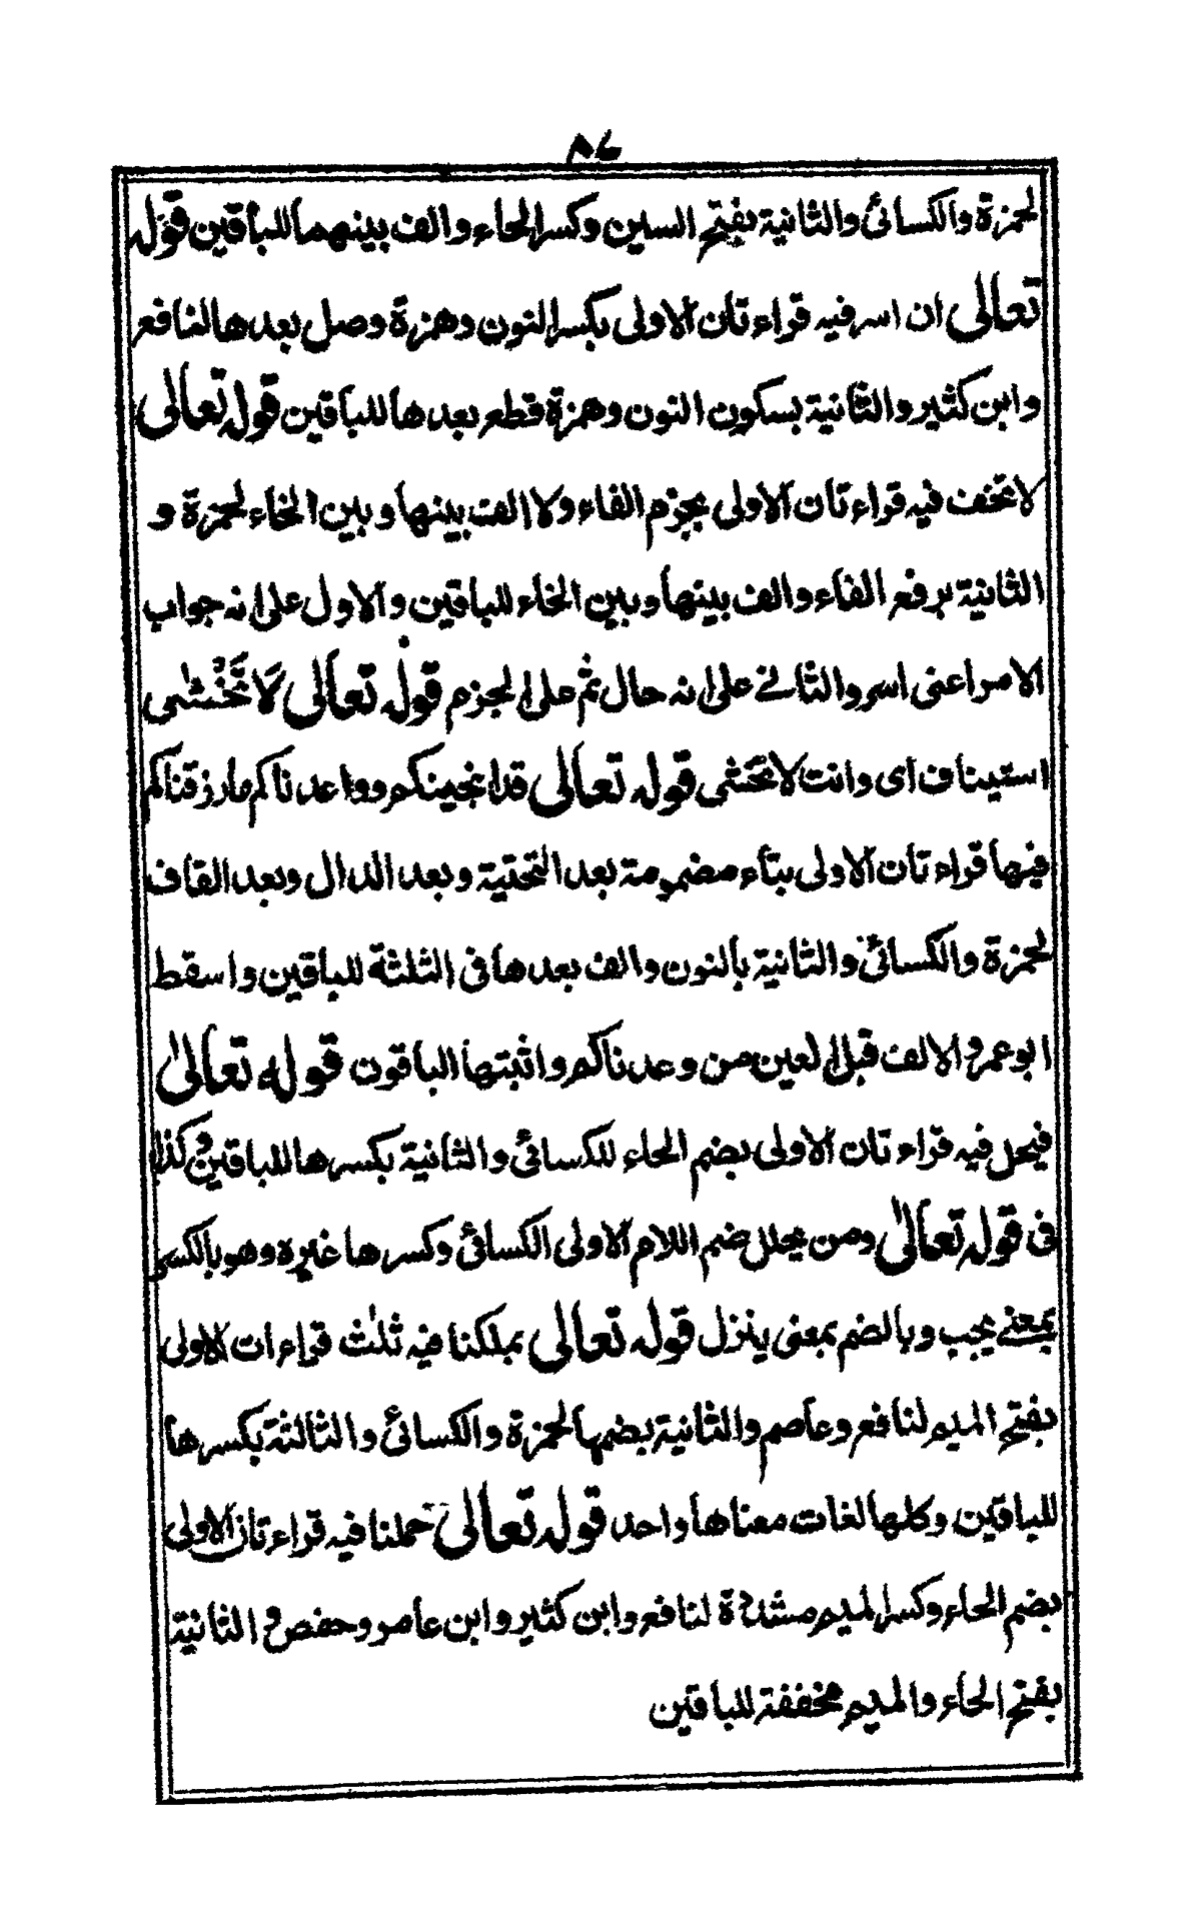 ٨٦
لحمزة والكسائي والثانية بفتح السين وكسر الحاء والف بينهما للباقين قوله
تعالى ان اسر فيه قراءتان الاولى بكسر النون وهمزة وصل بعدها لنافع
وابن كثير والثانية بسكون النون وهمزة قطع بعدها للباقين قوله تعالى
لا تخف فيه قراءتان الاولى بجزم الفاء ولا الف بينها وبين الخاء لحمزة و
الثانية برفع الفاء والف بينها وبين الخاء للباقين والاول على انه جواب
الامر اعنى اسر والثاني على انه حال ثم على الجزم قوله تعالى لَا تَخْشٰى
استيناف اى وانت لا تخشى قوله تعالى قد انجينكم وواعدناكم مارزقناكم
فيها قراءتان الاولى بتاء مضمومة بعد التحتية وبعد الدال وبعد القاف
لحمزة والكسائي والثانية بالنون والف بعدها فى الثلثة للباقين واسقط
ابو عمرو الالف قبل العين من وعدناكم واثبتها الباقون قوله تعالىٰ
فيحل فيه قراءتان الاولى بضم الحاء للكسائي والثانية بكسرها للباقين وكذا
فى قوله تعالىٰ ومن يحلل ضم اللام الاولى الكسائي وكسرها غيره وهو بالكسر
بمعنى يجب وبالضم بمعنى ينزل قوله تعالى بملكنا فيه ثلٰث قراءات الاولى
بفتح الميم لنافع وعاصم والثانية بضمها لحمزة والكسائي والثالثة بكسرها
للباقين وكلها لغات معناها واحد قوله تعالى حملنا فيه قراءتان الاولى
بضم الحاء وكسر الميم مشددة لنافع وابن كثير وابن عامر وحفص و الثانية
بفتح الحاء والميم مخففة للباقين